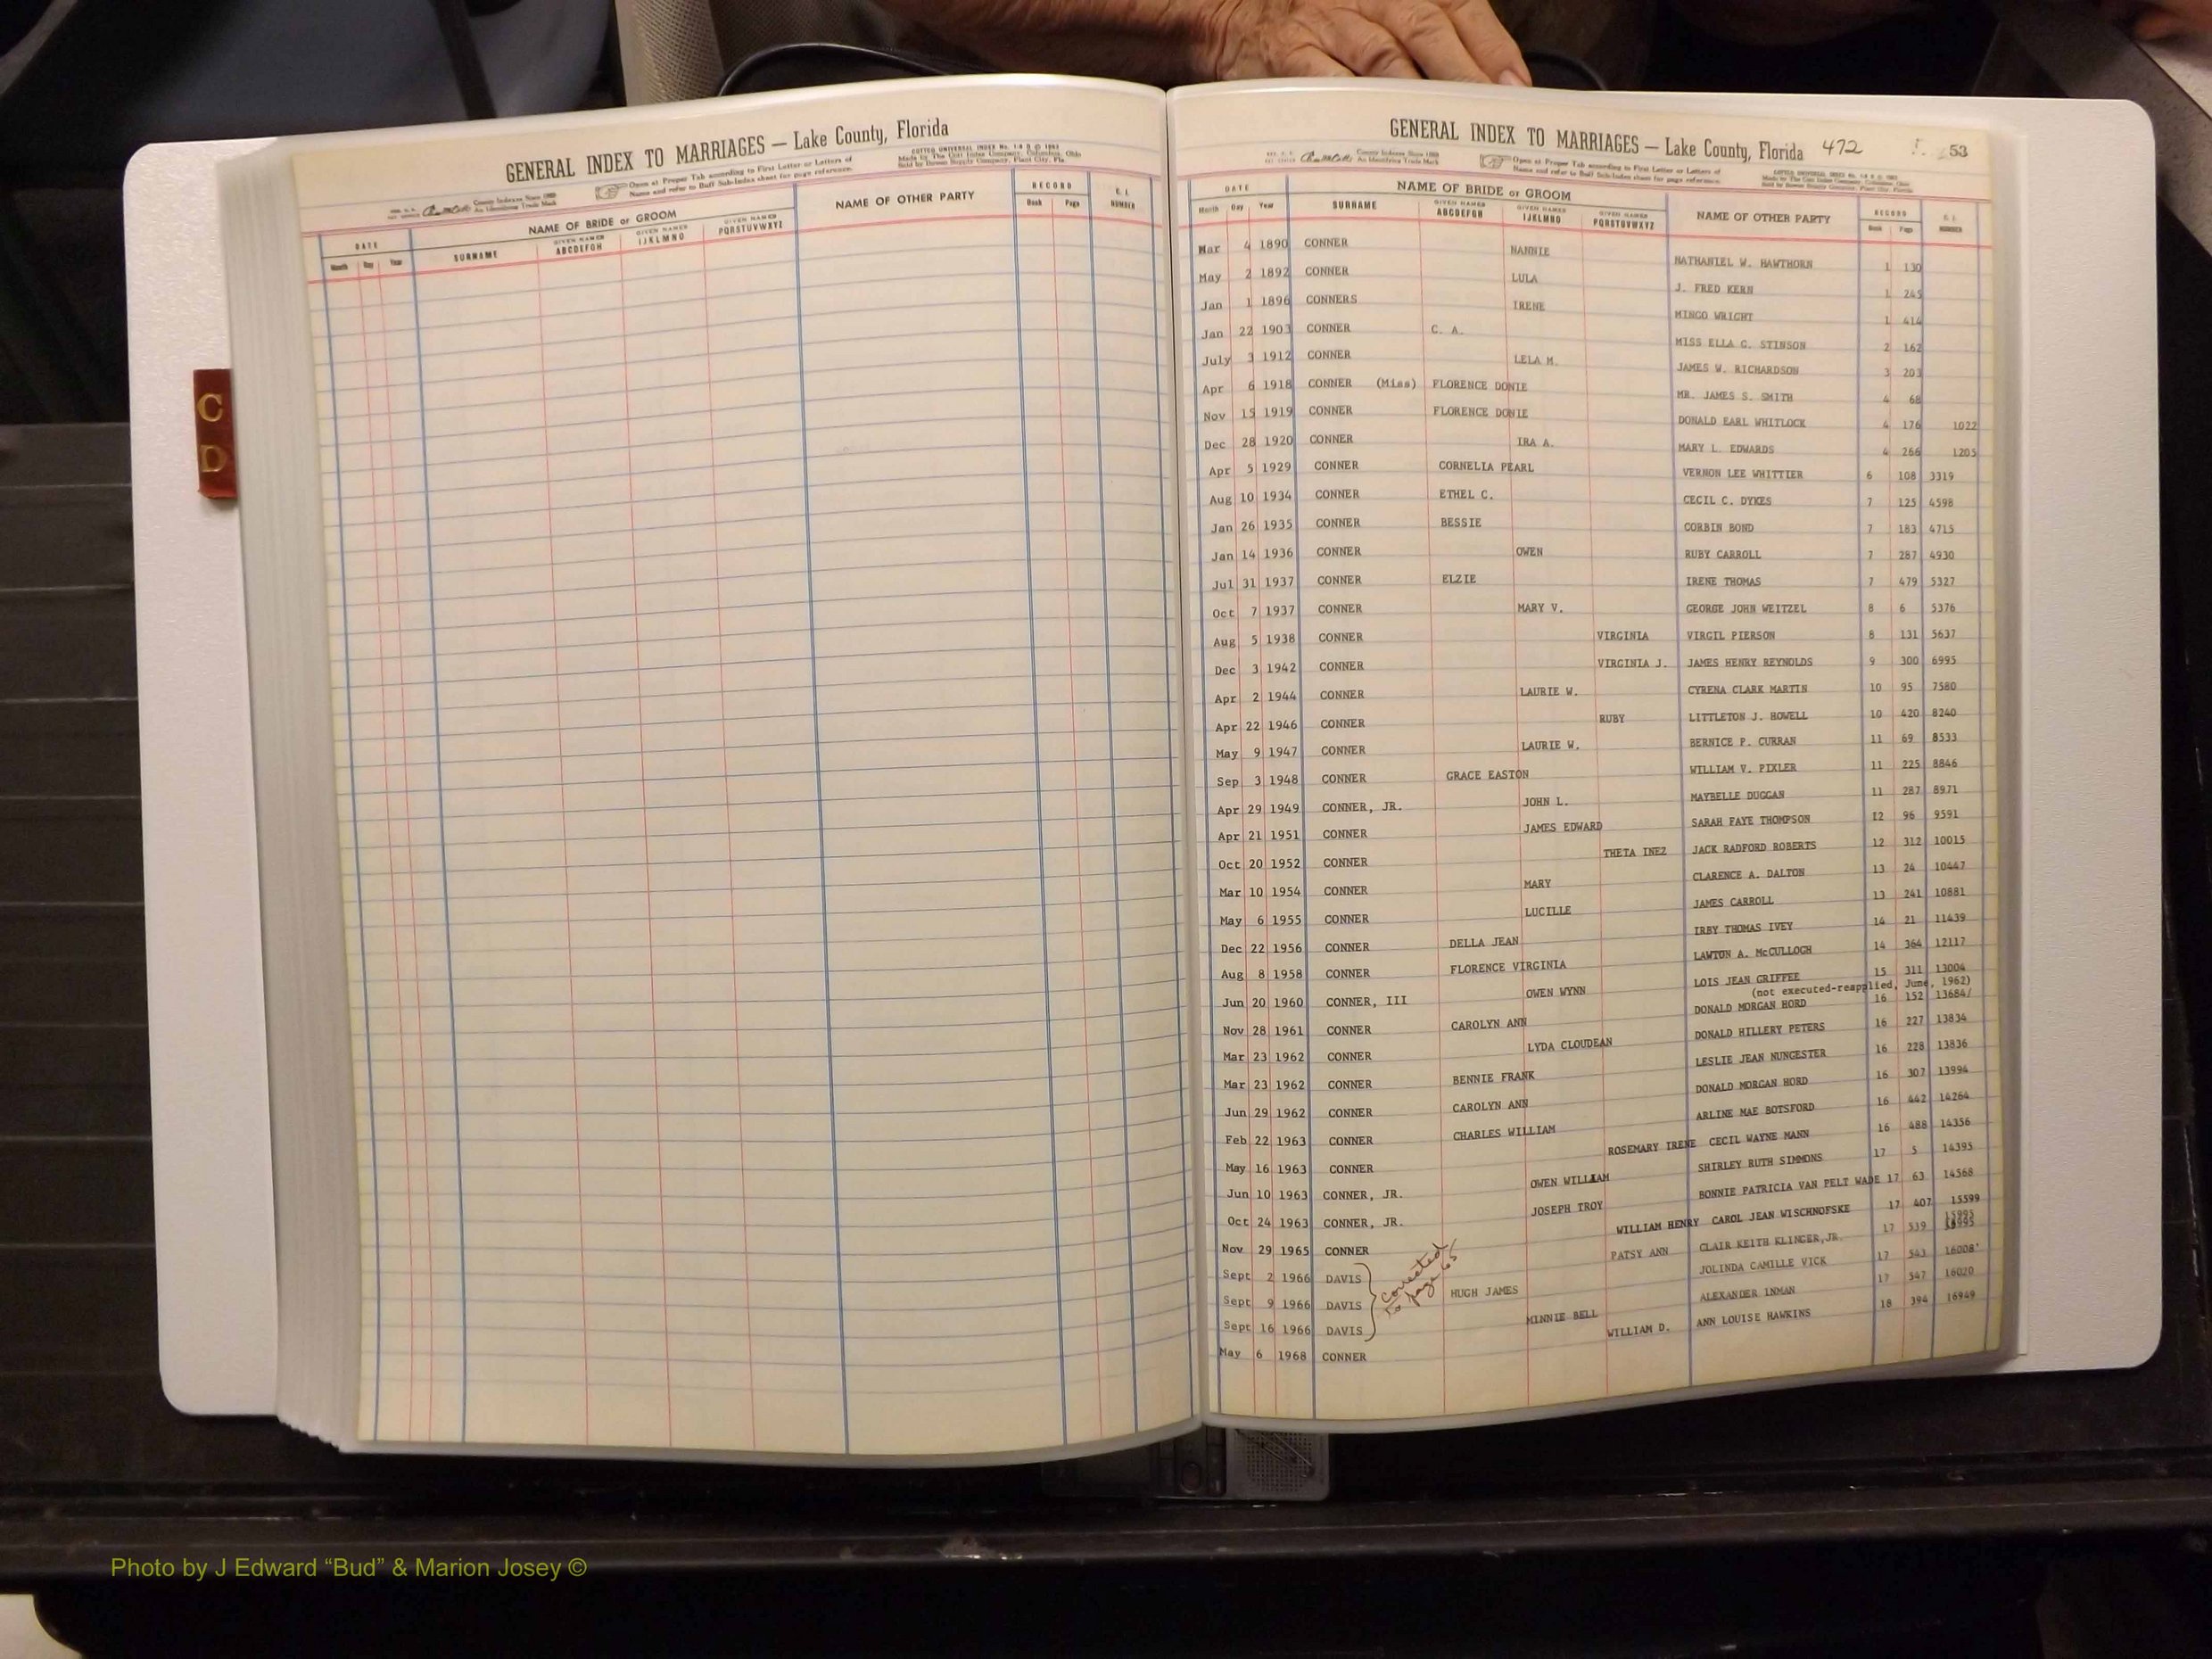 GENERAL INDEX TO MARRIAGES — Lake County, Florida
Open at Proper Tab according to First Letter or Letters of
Name and refer to Buff Sub-Index sheet for page reference.
DATE NAME OF BRIDE or GROOM NAME OF OTHER PARTY RECORD
Month Day Year SURNAME GIVEN NAMES ABCDEFGH GIVEN NAMES IJKLMNO GIVEN NAMES PQRSTUVWXYZ Book Page NUMBER
C
D
GENERAL INDEX TO MARRIAGES — Lake County, Florida 472 53
Open at Proper Tab according to First Letter or Letters of
Name and refer to Buff Sub-Index sheet for page reference.
DATE NAME OF BRIDE or GROOM NAME OF OTHER PARTY RECORD
Month Day Year SURNAME GIVEN NAMES ABCDEFGH GIVEN NAMES IJKLMNO GIVEN NAMES PQRSTUVWXYZ Book Page NUMBER
Mar 4 1890 CONNER NANNIE NATHANIEL W. HAWTHORN 1 130
May 2 1892 CONNER LULA J. FRED KERN 1 245
Jan 1 1896 CONNERS IRENE MINGO WRIGHT 1 414
Jan 22 1903 CONNER C. A. MISS ELLA C. STINSON 2 162
July 3 1912 CONNER LELA M. JAMES W. RICHARDSON 3 203
Apr 6 1918 CONNER (Miss) FLORENCE DONIE MR. JAMES S. SMITH 4 68
Nov 15 1919 CONNER FLORENCE DONIE DONALD EARL WHITLOCK 4 176 1022
Dec 28 1920 CONNER IRA A. MARY L. EDWARDS 4 266 1205
Apr 5 1929 CONNER CORNELIA PEARL VERNON LEE WHITTIER 6 108 3319
Aug 10 1934 CONNER ETHEL C. CECIL C. DYKES 7 125 4598
Jan 26 1935 CONNER BESSIE CORBIN BOND 7 183 4715
Jan 14 1936 CONNER OWEN RUBY CARROLL 7 287 4930
Jul 31 1937 CONNER ELZIE IRENE THOMAS 7 479 5327
Oct 7 1937 CONNER MARY V. GEORGE JOHN WEITZEL 8 6 5376
Aug 5 1938 CONNER VIRGINIA VIRGIL PIERSON 8 131 5637
Dec 3 1942 CONNER VIRGINIA J. JAMES HENRY REYNOLDS 9 300 6995
Apr 2 1944 CONNER LAURIE W. CYRENA CLARK MARTIN 10 95 7580
Apr 22 1946 CONNER RUBY LITTLETON J. HOWELL 10 420 8240
May 9 1947 CONNER LAURIE W. BERNICE P. CURRAN 11 69 8533
Sep 3 1948 CONNER GRACE EASTON WILLIAM V. PIXLER 11 225 8846
Apr 29 1949 CONNER, JR. JOHN L. MAYBELLE DUGGAN 11 287 8971
Apr 21 1951 CONNER JAMES EDWARD SARAH FAYE THOMPSON 12 96 9591
Oct 20 1952 CONNER THETA INEZ JACK RADFORD ROBERTS 12 312 10015
Mar 10 1954 CONNER MARY CLARENCE A. DALTON 13 24 10447
May 6 1955 CONNER LUCILLE JAMES CARROLL 13 241 10881
Dec 22 1956 CONNER DELLA JEAN IRBY THOMAS IVEY 14 21 11439
Aug 8 1958 CONNER FLORENCE VIRGINIA LAWTON A. McCULLOGH 14 364 12117
Jun 20 1960 CONNER, III OWEN WYNN LOIS JEAN GRIFFEE 15 311 13004
(not executed-reapplied, June, 1962)
Nov 28 1961 CONNER CAROLYN ANN DONALD MORGAN HORD 16 152 13684/
Mar 23 1962 CONNER LYDA CLOUDEAN DONALD HILLERY PETERS 16 227 13834
Mar 23 1962 CONNER BENNIE FRANK LESLIE JEAN NUNGESTER 16 228 13836
Jun 29 1962 CONNER CAROLYN ANN DONALD MORGAN HORD 16 307 13994
Feb 22 1963 CONNER CHARLES WILLIAM ARLINE MAE BOTSFORD 16 442 14264
May 16 1963 CONNER ROSEMARY IRENE CECIL WAYNE MANN 16 488 14356
Jun 10 1963 CONNER, JR. OWEN WILLIAM SHIRLEY RUTH SIMMONS 17 5 14395
Oct 24 1963 CONNER, JR. JOSEPH TROY BONNIE PATRICIA VAN PELT WADE 17 63 14568
Nov 29 1965 CONNER WILLIAM HENRY CAROL JEAN WISCHNOFSKE 17 407 15599
Sept 2 1966 DAVIS PATSY ANN CLAIR KEITH KLINGER, JR. 17 539 15995
Sept 9 1966 DAVIS HUGH JAMES JOLINDA CAMILLE VICK 17 543 16008
Sept 16 1966 DAVIS MINNIE BELL ALEXANDER INMAN 17 547 16020
corrected
to page 65
May 6 1968 CONNER WILLIAM D. ANN LOUISE HAWKINS 18 394 16949
Photo by J Edward “Bud” & Marion Josey ©